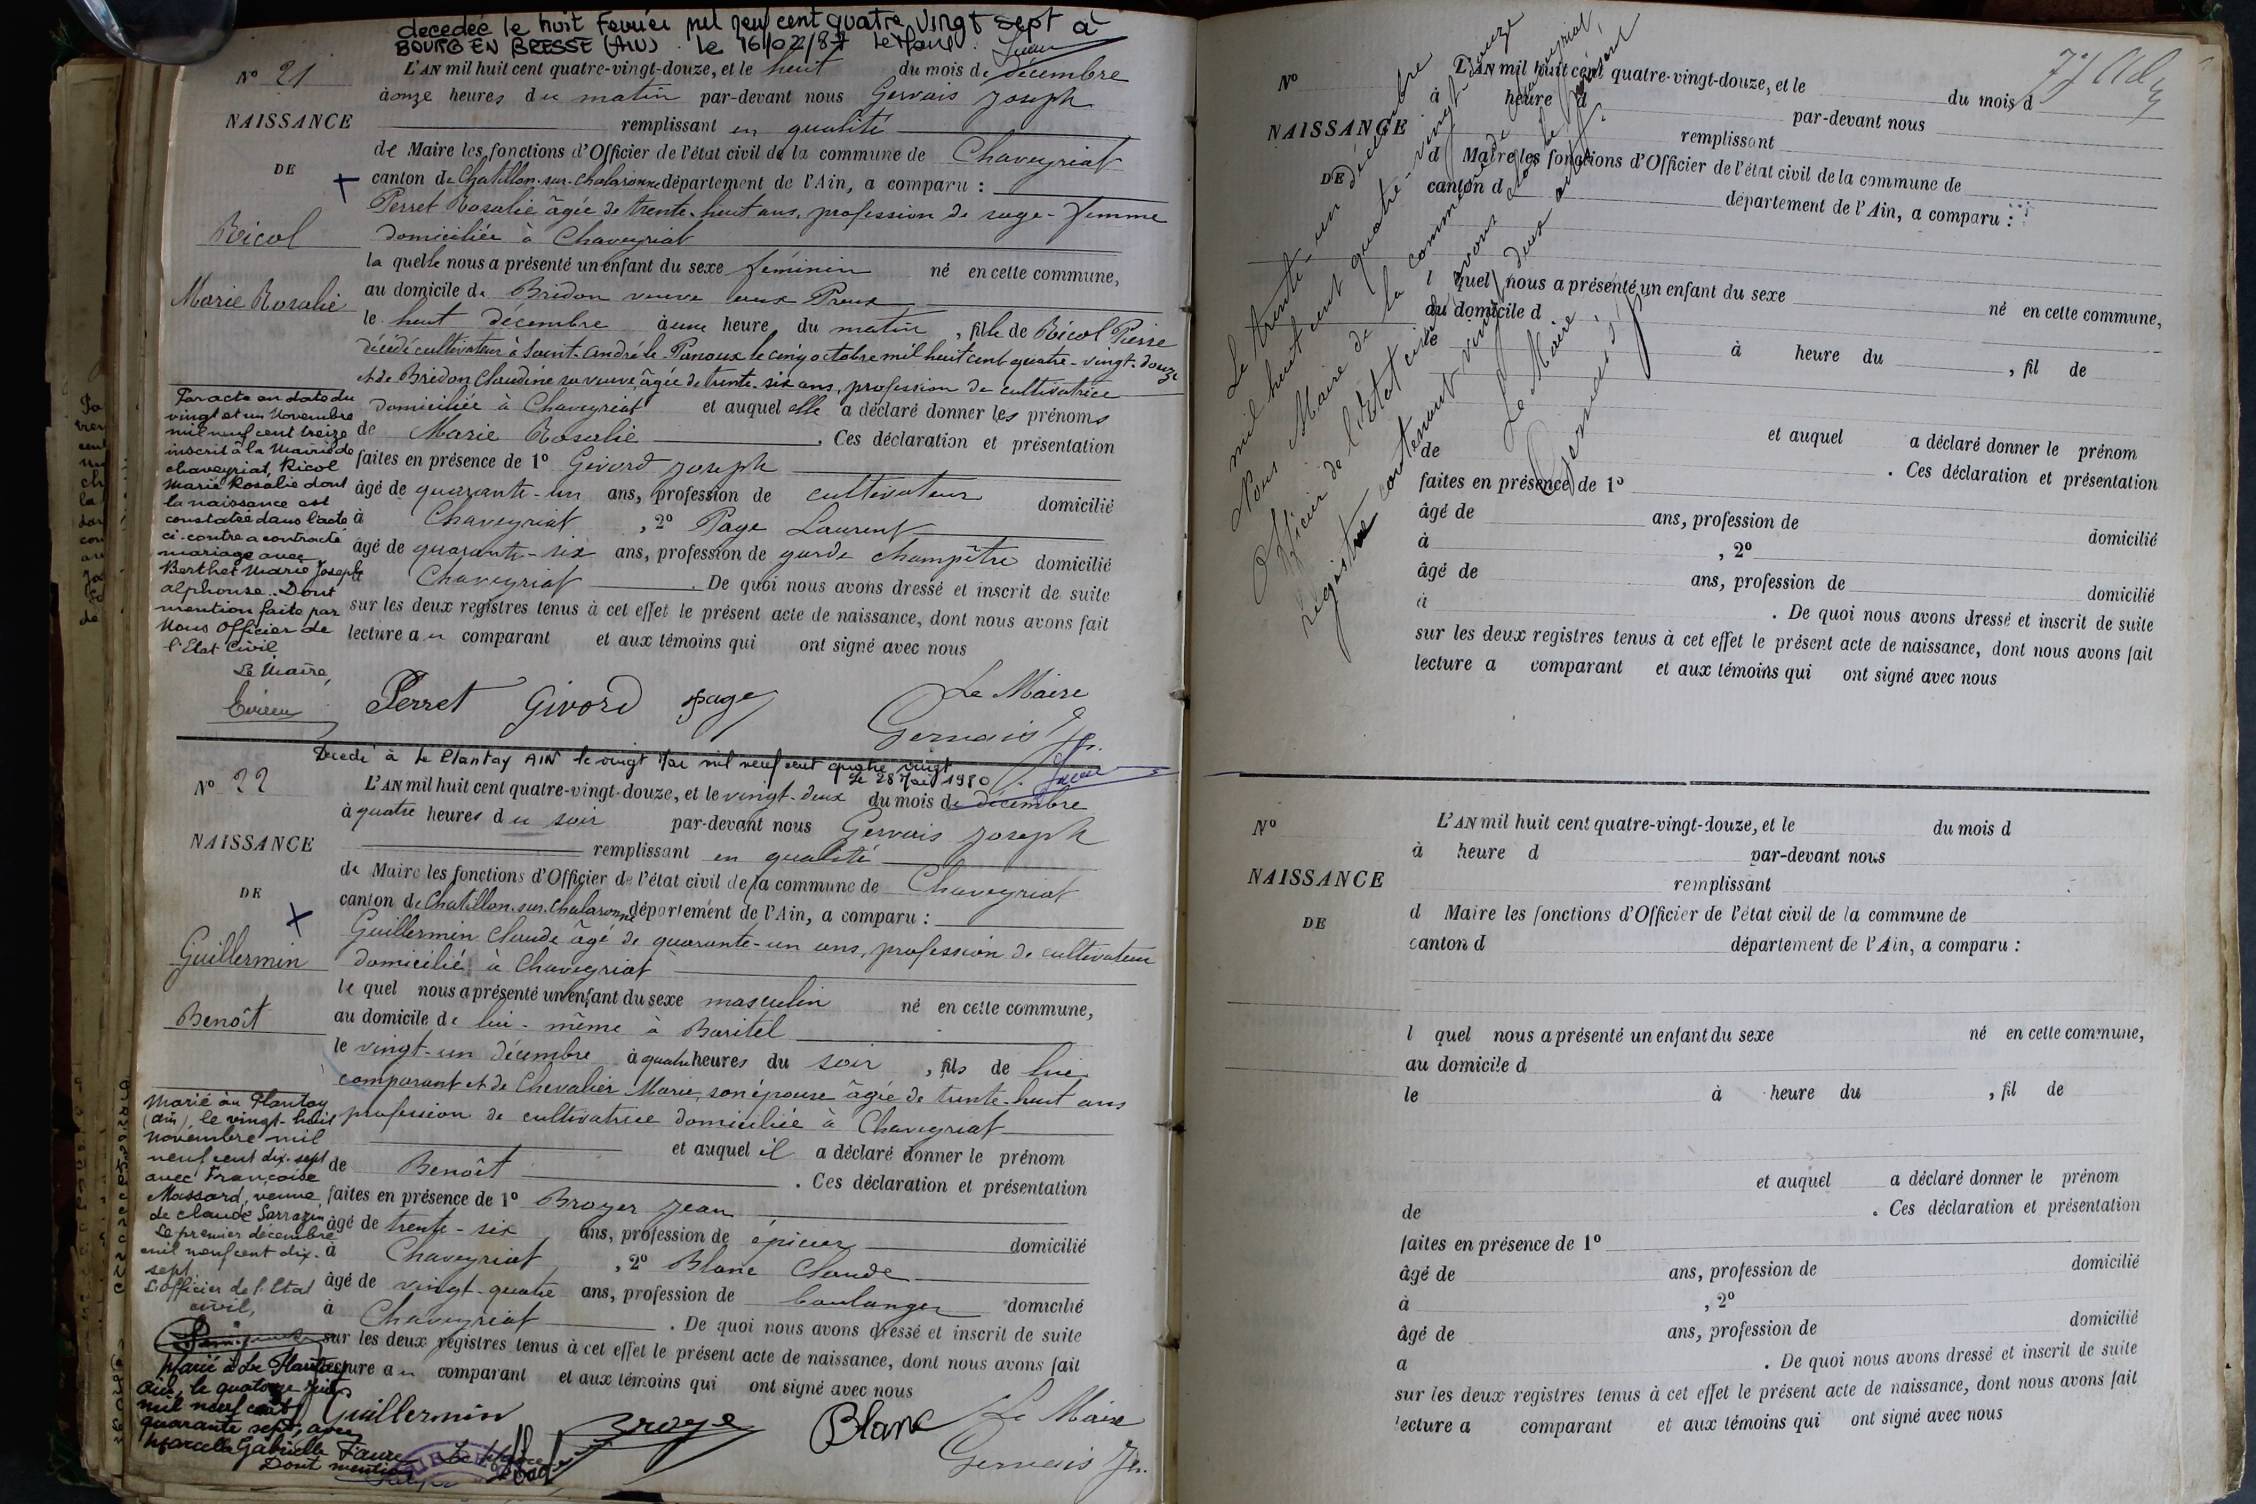 decedée le huit Fevrier mil neuf cent quatre vingt sept à
BOURG EN BRESSE (AIN). Le 16/02/87
N° 21
L'AN mil huit cent quatre-vingt-douze, et le huit du mois de décembre
à onze heures du matin par-devant nous Gervais Joseph
NAISSANCE
remplissant en qualité
de Maire les fonctions d'Officier de l'état civil de la commune de Chaveyriat
DE
canton de Chatillon-sur-Chalaronne département de l'Ain, a comparu :
Perret Rosalie âgée de trente-huit ans, profession de sage-femme
Ricol
domiciliée à Chaveyriat
la quelle nous a présenté un enfant du sexe féminin né en cette commune,
Marie Rosalie
au domicile de Bridon veuve aux Preux
le huit décembre à une heure du matin, fille de Ricol Pierre
décédé cultivateur à Saint-André-le-Panoux le cinq octobre mil huit cent quatre-vingt-douze
et de Bridon Claudine sa veuve âgée de trente-six ans, profession de cultivatrice
domiciliée à Chaveyriat et auquel elle a déclaré donner les prénoms
de Marie Rosalie. Ces déclaration et présentation
faites en présence de 1° Givord Joseph
âgé de quarante-un ans, profession de cultivateur domicilié
à Chaveyriat, 2° Page Laurent
âgé de quarante-six ans, profession de garde champêtre domicilié
Chaveyriat. De quoi nous avons dressé et inscrit de suite
sur les deux registres tenus à cet effet le présent acte de naissance, dont nous avons fait
lecture au comparant et aux témoins qui ont signé avec nous
Par acte en date du
vingt et un Novembre
mil neuf cent treize
inscrit à la Mairie de
chaveyriat, Ricol
Marie Rosalie dont
la naissance est
constatée dans l'acte
ci-contre a contracté
mariage avec
Berthet Marie Joseph
alphonse. Dont
mention faite par
Nous Officier de
l'Etat Civil
Le Maire,
Perret Givord page
Le Maire
Gervais Jh.
Decedé à Le Plantay AIN le vingt Mai mil neuf cent quatre vingt
Le 28 Mai 1980
N° 22
L'AN mil huit cent quatre-vingt-douze, et le vingt-deux du mois de décembre
à quatre heures du soir par-devant nous Gervais Joseph
NAISSANCE
remplissant en qualité
de Maire les fonctions d'Officier de l'état civil de la commune de Chaveyriat
DE
canton de Chatillon-sur-Chalaronne département de l'Ain, a comparu :
Guillermin Claude âgé de quarante-un ans, profession de cultivateur
Guillermin
domicilié à Chaveyriat
le quel nous a présenté un enfant du sexe masculin né en cette commune,
Benoît
au domicile de lui-même à Baritel
le vingt-un décembre à quatre heures du soir, fils de lui
comparant et de Chevalier Marie, son épouse âgée de trente-huit ans
profession de cultivatrice domiciliée à Chaveyriat
et auquel il a déclaré donner le prénom
de Benoît. Ces déclaration et présentation
faites en présence de 1° Broyer Jean
âgé de trente-six ans, profession de épicier domicilié
à Chaveyriat, 2° Blanc Claude
âgé de vingt-quatre ans, profession de boulanger domicilié
à Chaveyriat. De quoi nous avons dressé et inscrit de suite
sur les deux registres tenus à cet effet le présent acte de naissance, dont nous avons fait
lecture au comparant et aux témoins qui ont signé avec nous
Marié au Plantay
(Ain), le vingt-huit
novembre mil
neuf cent dix-sept
avec Françoise
Massard, veuve
de Claude Sarrazin
Le premier décembre
mil neuf cent dix-
sept
L'officier de l'Etat
civil,
Marié à Le Plantay
Ain, le quatorze
mil neuf cent
quarante sept, avec
Marcelle Gabrielle Faure
Dont mention
Guillermin Broye Blanc
Le Maire
Gervais Jh.
N°
L'AN mil huit cent quatre-vingt-douze, et le du mois d
à heure d par-devant nous
NAISSANCE
remplissant
d Maire les fonctions d'Officier de l'état civil de la commune de
DE
canton d département de l'Ain, a comparu :
l quel nous a présenté un enfant du sexe né en cette commune,
au domicile d
le à heure du, fil de
et auquel a déclaré donner le prénom
de. Ces déclaration et présentation
faites en présence de 1°
âgé de ans, profession de domicilié
à, 2°
âgé de ans, profession de domicilié
à. De quoi nous avons dressé et inscrit de suite
sur les deux registres tenus à cet effet le présent acte de naissance, dont nous avons fait
lecture a comparant et aux témoins qui ont signé avec nous
Le trente-un décembre
mil huit cent quatre-vingt-douze
Nous Maire de la commune de Chaveyriat,
Officier de l'Etat civil avons clos le présent
registre contenant vingt deux actes.
Le Maire
Gervais Jh
N°
L'AN mil huit cent quatre-vingt-douze, et le du mois d
à heure d par-devant nous
NAISSANCE
remplissant
d Maire les fonctions d'Officier de l'état civil de la commune de
DE
canton d département de l'Ain, a comparu :
l quel nous a présenté un enfant du sexe né en cette commune,
au domicile d
le à heure du, fil de
et auquel a déclaré donner le prénom
de. Ces déclaration et présentation
faites en présence de 1°
âgé de ans, profession de domicilié
à, 2°
âgé de ans, profession de domicilié
a. De quoi nous avons dressé et inscrit de suite
sur les deux registres tenus à cet effet le présent acte de naissance, dont nous avons fait
lecture a comparant et aux témoins qui ont signé avec nous